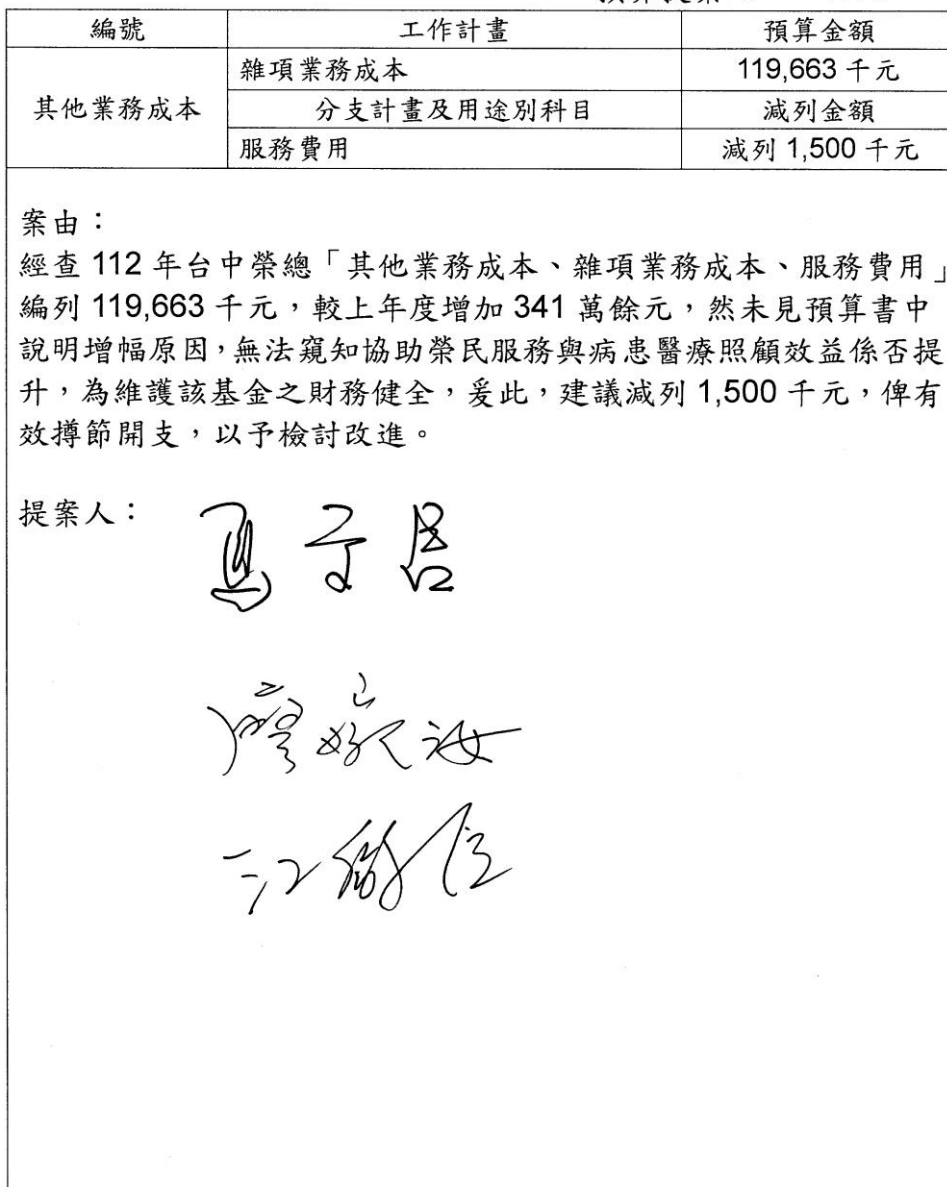 編號 工作計畫 預算金額
其他業務成本 雜項業務成本 119,663 千元
分支計畫及用途別科目 減列金額
服務費用 減列 1,500 千元
案由：
經查 112 年台中榮總「其他業務成本、雜項業務成本、服務費用」
編列 119,663 千元，較上年度增加 341 萬餘元，然未見預算書中
說明增幅原因，無法窺知協助榮民服務與病患醫療照顧效益係否提
升，為維護該基金之財務健全，爰此，建議減列 1,500 千元，俾有
效撙節開支，以予檢討改進。
提案人：